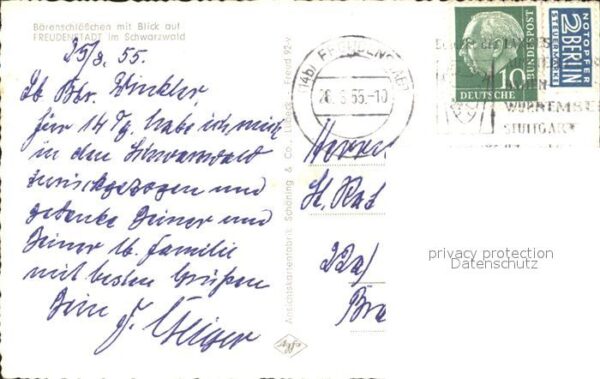 Bärenschlößchen mit Blick auf
FREUDENSTADT im Schwarzwald
25/8. 55.
Lb. Bbr. Winkler,
für 14 Tg. habe ich mich
in den Schwarzwald
zurückgezogen und
gedenke Deiner und
Deiner lb. Familie
mit besten Grüßen
Dein
Ansichtskartenfabrik Schöning & Co., Lübeck
Freud 92
(14b) FREUDENSTADT
55-10
10
DEUTSCHE
BUNDESPOST
NOTOPFER
2 BERLIN
STEUERMARKE
STUTTGART
Herrn
St. Rat
22a/
privacy protection
Datenschutz